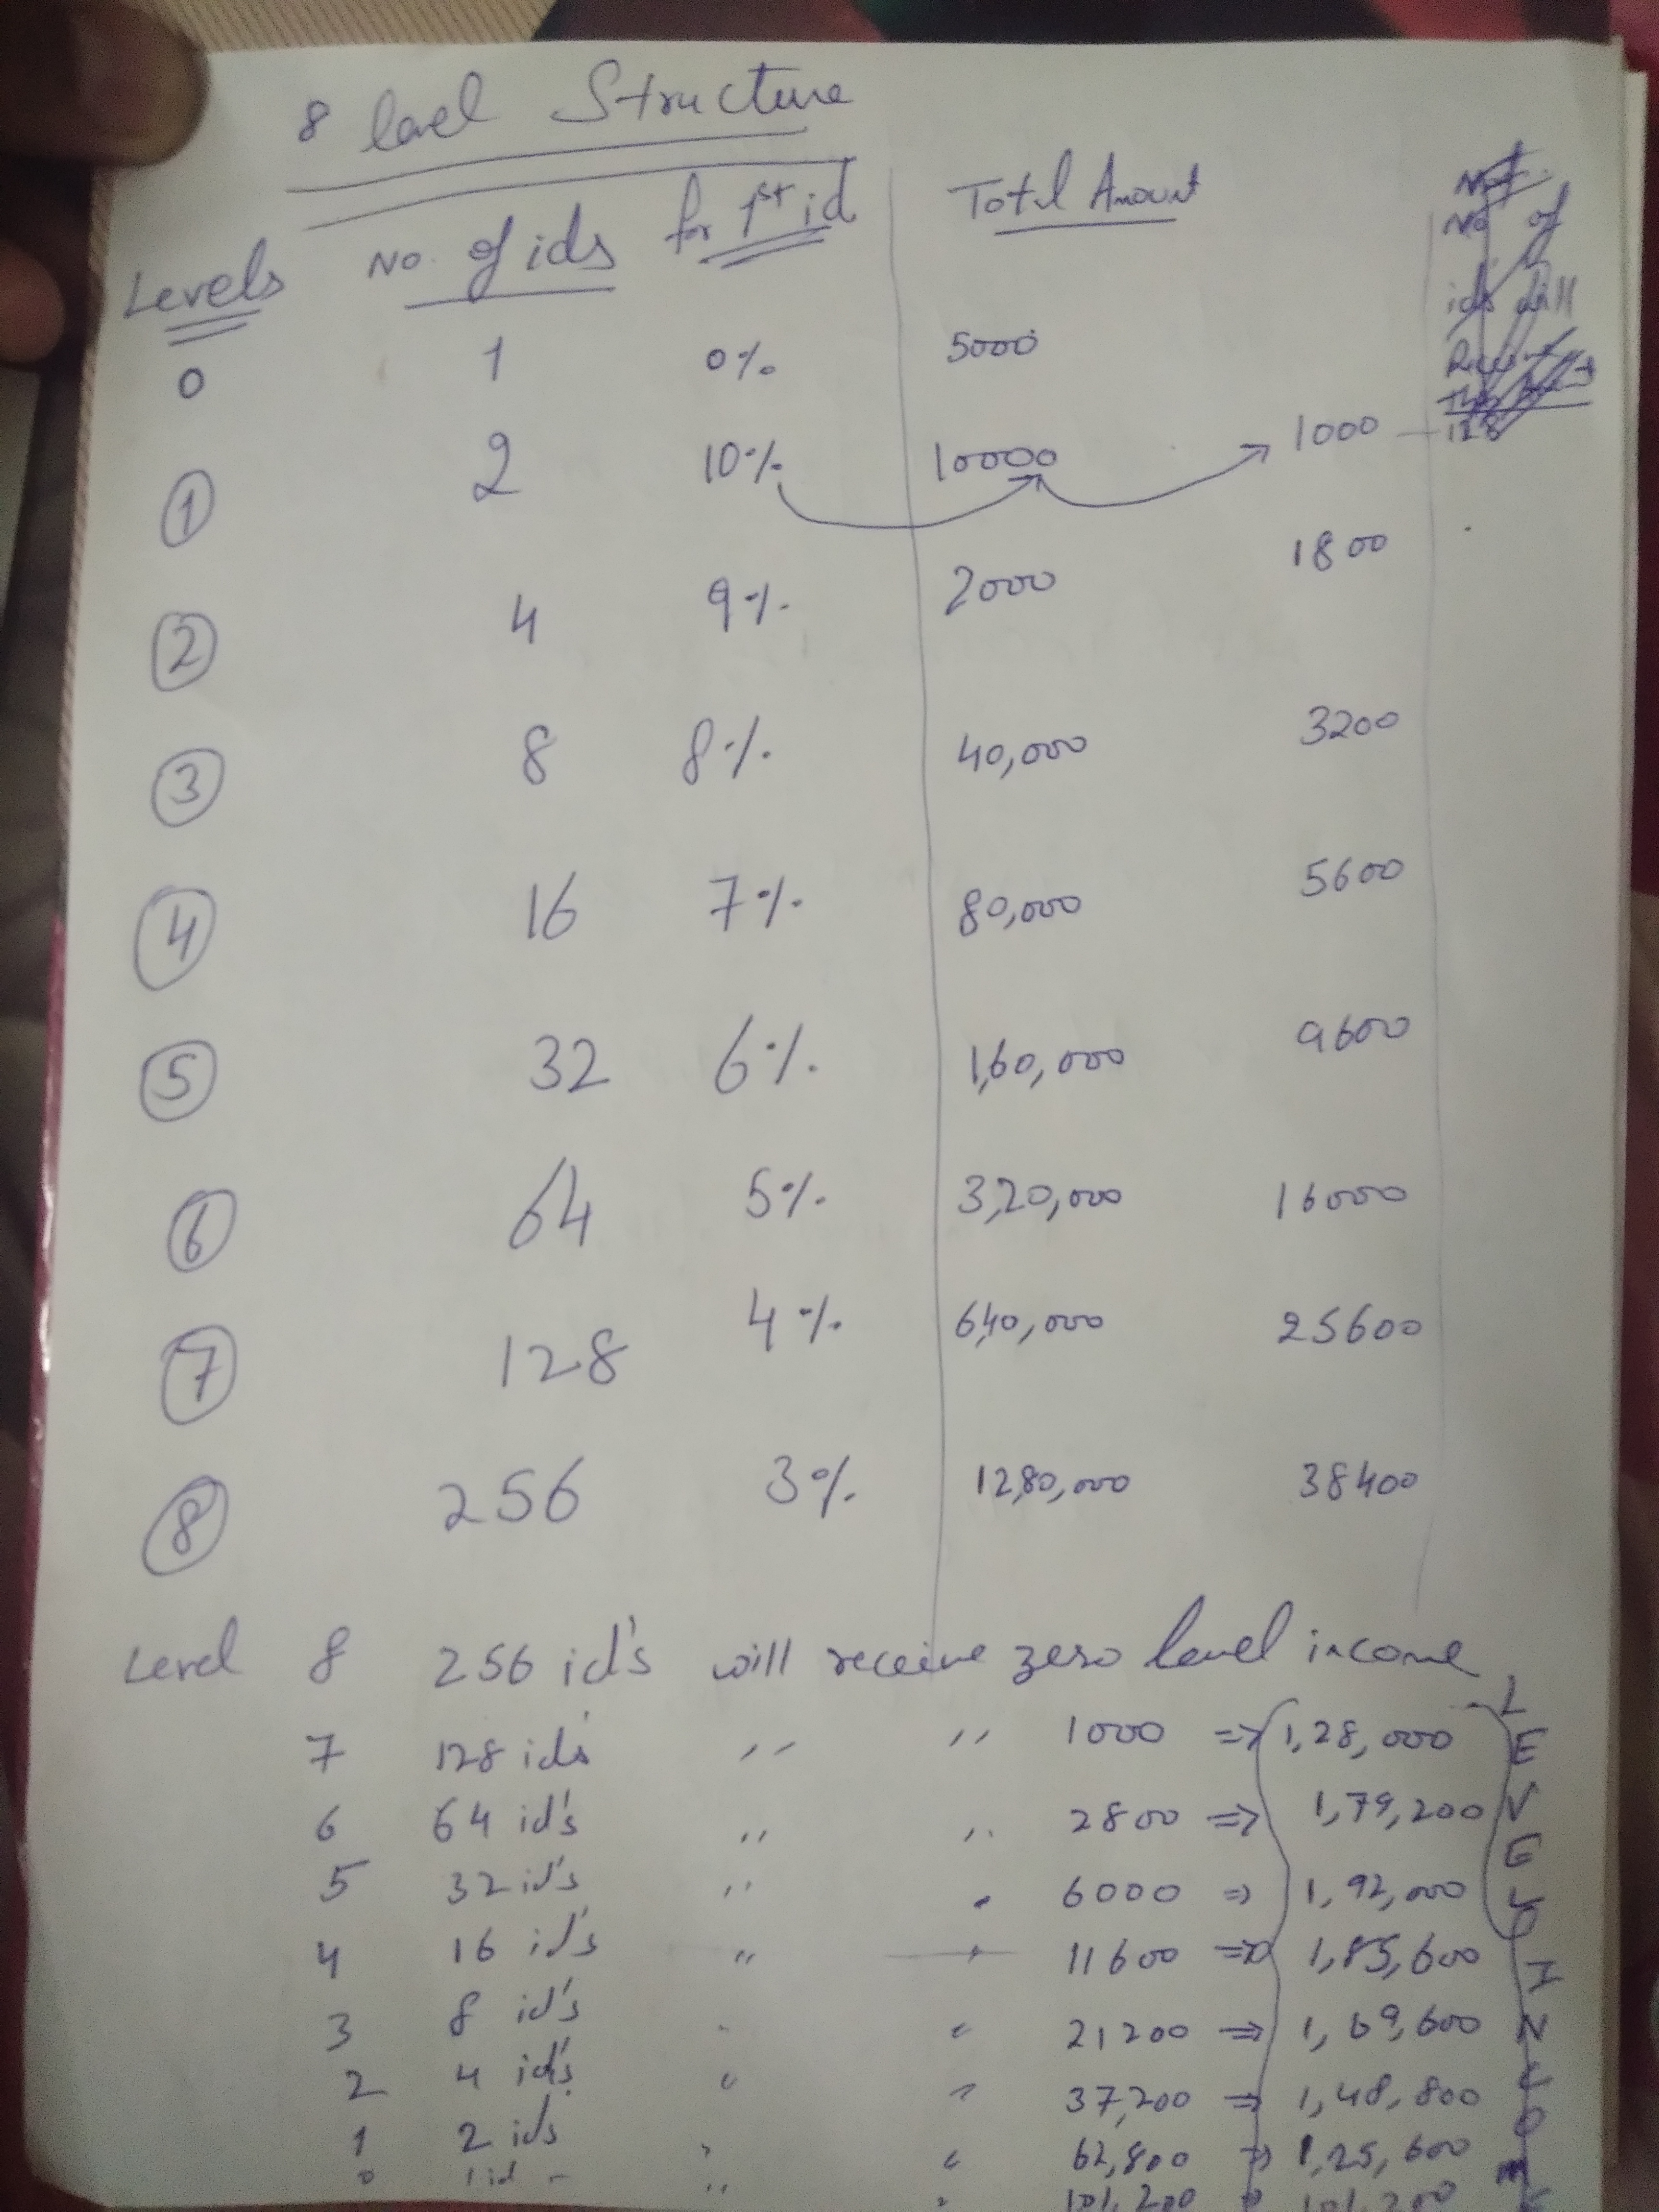 8 level Structure
Levels No. of ids for 1st id Total Amount
No of
ids will
0 1 0% 5000
1 2 10% 10000 1000 128
2 4 9% 2000 1800
3 8 8% 40,000 3200
4 16 7% 80,000 5600
5 32 6% 1,60,000 9600
6 64 5% 3,20,000 16000
7 128 4% 6,40,000 25600
8 256 3% 12,80,000 38400
Level 8 256 id's will receive zero level income
7 128 ids " " 1000 => 1,28,000
6 64 id's " " 2800 => 1,79,200
5 32 id's " " 6000 => 1,92,000
4 16 id's " " 11600 => 1,85,600
3 8 id's " " 21200 => 1,69,600
2 4 id's " " 37,200 => 1,48,800
1 2 ids " " 62,800 => 1,25,600
0 1 id - " " 101,200 => 101,200
LEVEL INCOME